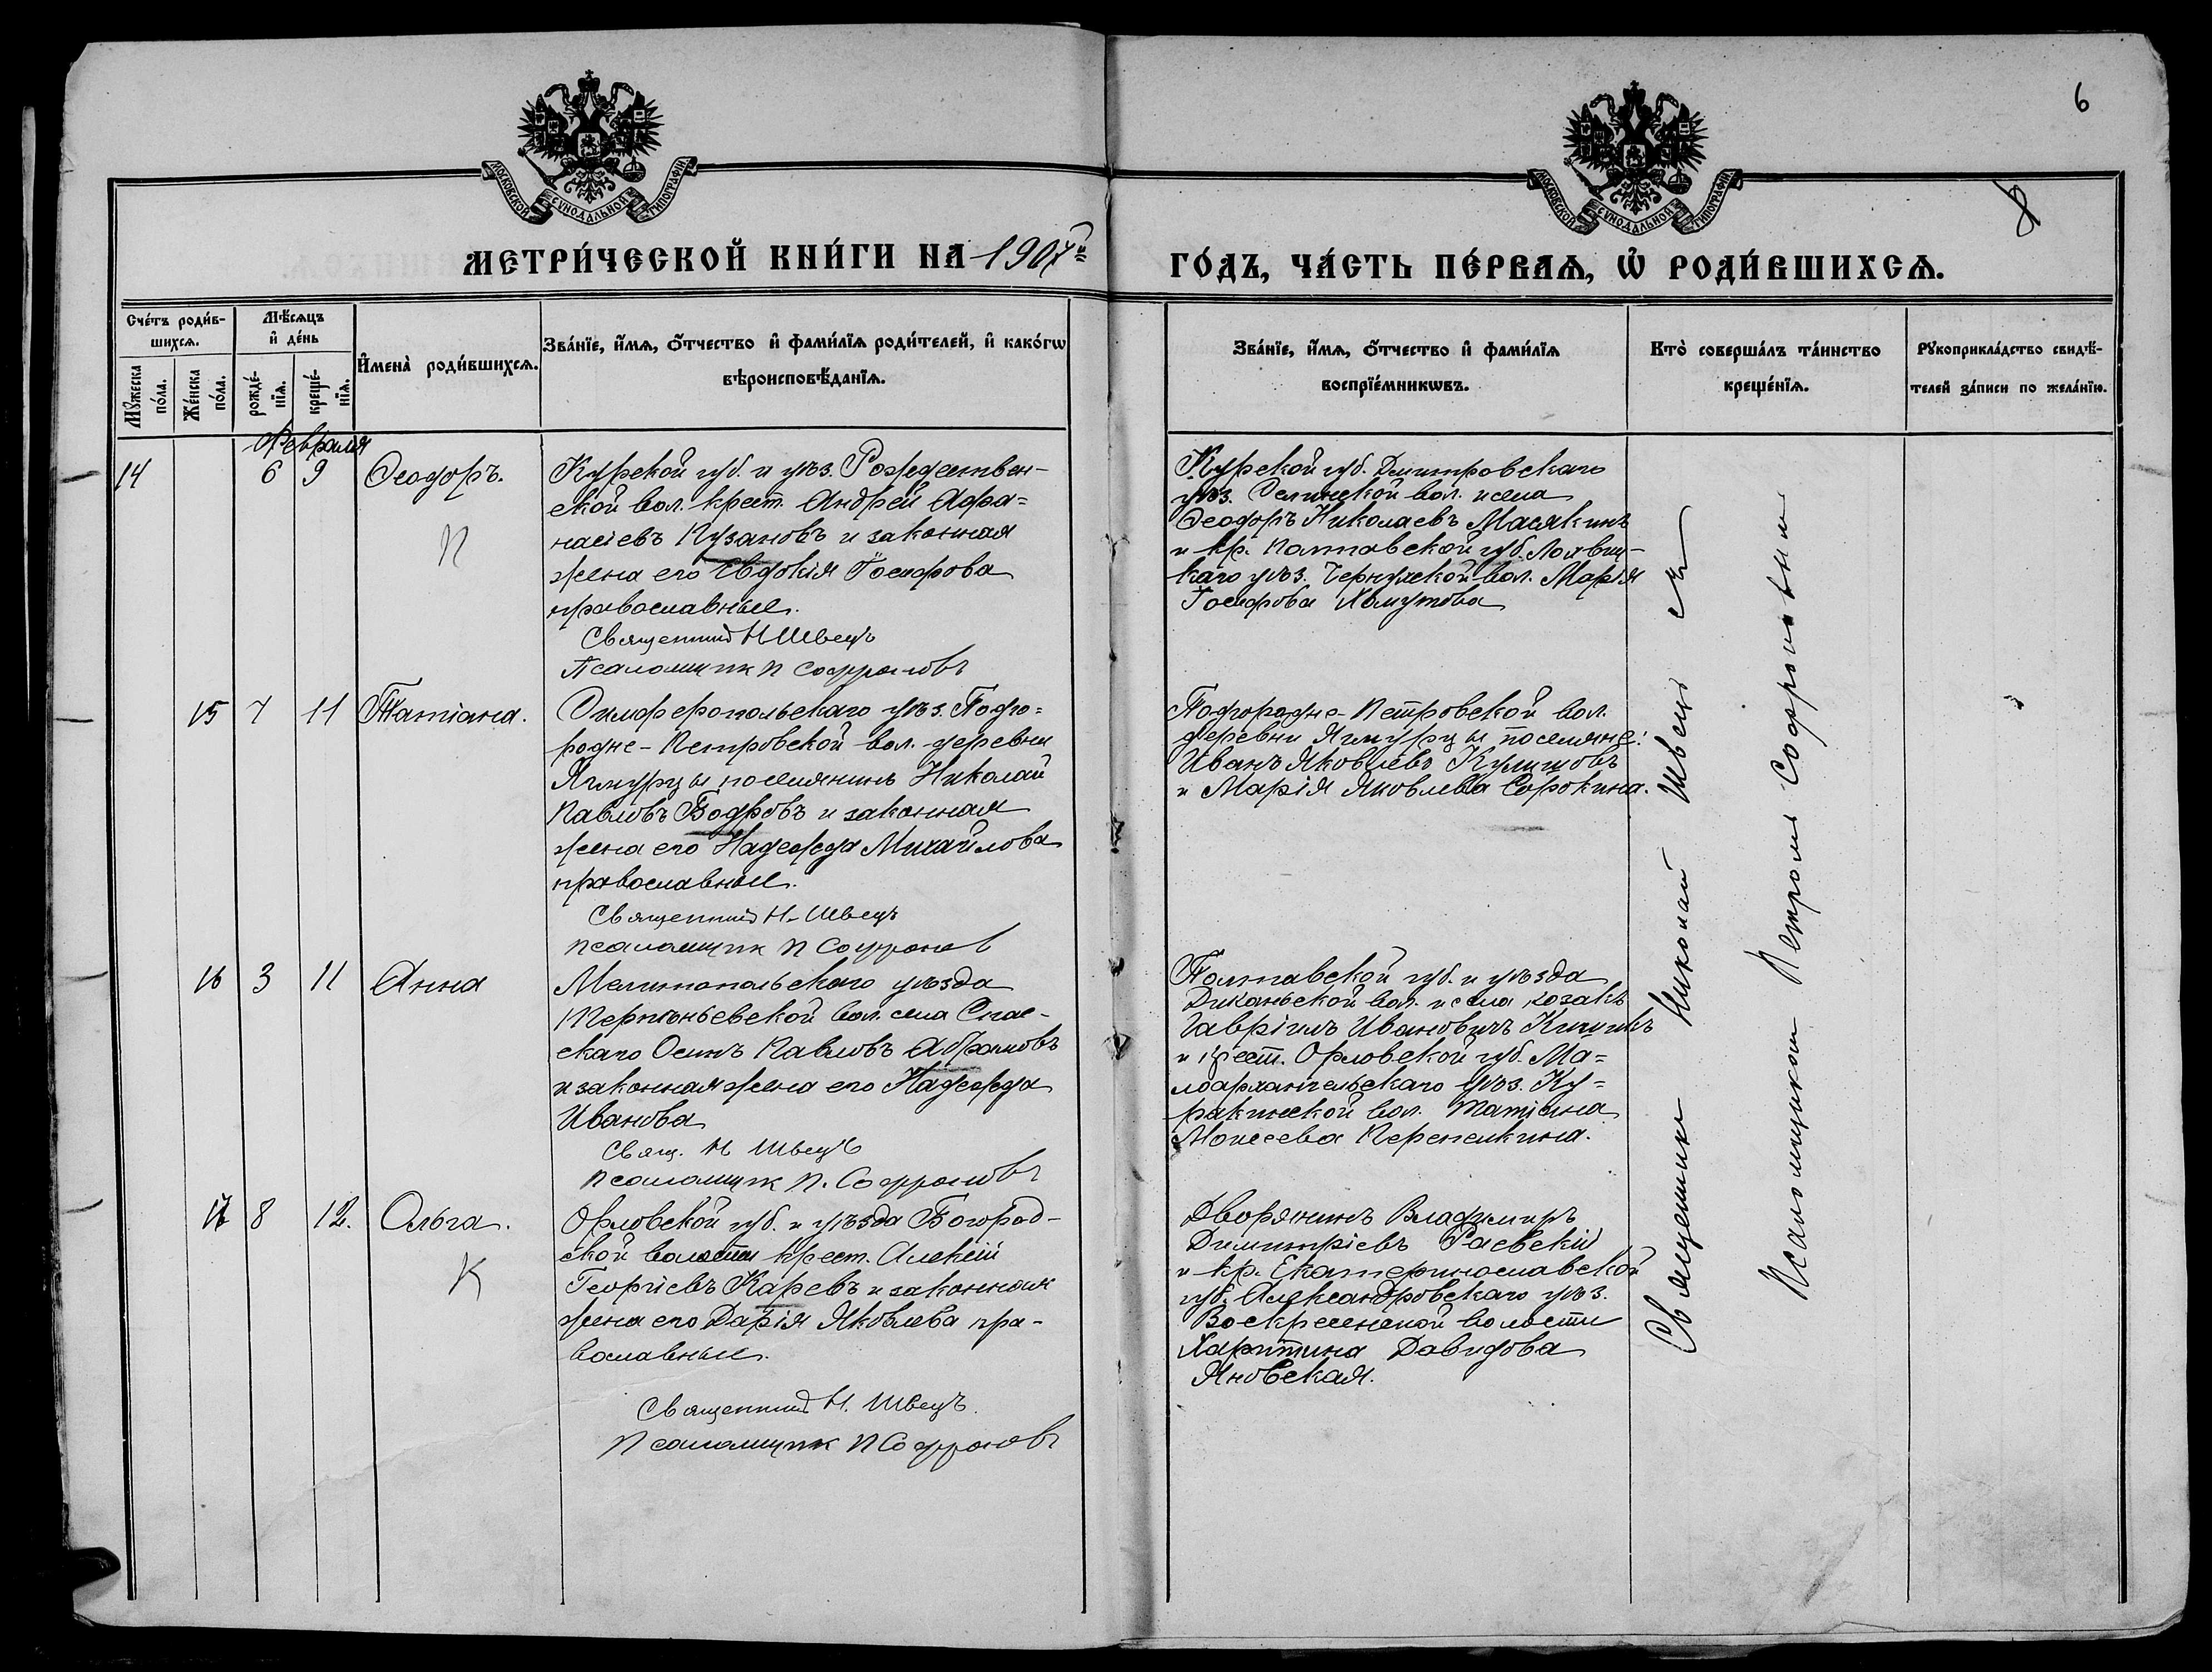 6
8
МОСКОВСКОЙ СѴНОДАЛЬНОЙ ТИПОГРАФІИ
МОСКОВСКОЙ СѴНОДАЛЬНОЙ ТИПОГРАФІИ
МЕТРИ́ЧЕСКОЙ КНИ́ГИ НА 1907й
ГО́ДЪ, ЧА́СТЬ ПЕ́РВАѦ, Ѽ РОДИ́ВШИХСѦ.
Сче́тъ роди́в-
шихсѧ.
Мꙋ́жеска по́ла.
Же́нска по́ла.
Мѣ́сѧцъ
и҆ де́нь
рожде́-
нїѧ.
креще́-
нїѧ.
И҆мена̀ роди́вшихсѧ.
Зва́нїе, и҆́мѧ, ѻ҆́тчество и҆ фами́лїѧ роди́телей, и҆ како́гѡ
вѣроисповѣ́данїѧ.
Зва́нїе, и҆́мѧ, ѻ҆́тчество и҆ фами́лїѧ
воспрїе́мникѡвъ.
Кто̀ соверша́лъ та́инство
креще́нїѧ.
Рꙋкоприкла́дство свидѣ́-
телей за́писи по жела́нїю.
Февраля
14 6 9 Ѳеодоръ.
П
Курской губ. и уѣз. Рождествен-
ской вол. крест. Андрей Афа=
насіевъ Пузановъ и законная
жена его Евдокія Іосифова
православные.
Священник Н Швецъ
Псаломщик П Софроновъ
Курской губ. Дмитровскаго
уѣз. вол. и села
Ѳеодоръ Николаевъ Масякинъ
и кр. Полтавской губ. Лохвиц-
каго уѣз. Чернухской вол. Марія
Іосифова Хомутова
15 7 11 Татіана.
Симферопольскаго уѣз. Подго=
родне-Петровской вол. деревни
поселянинъ Николай
Павловъ Бодровъ и законная
жена его Надежда Михайлова
православные.
Священник Н. Швецъ
псаломщик П Софронов
Подгородне-Петровской вол.
деревни поселяне:
Иванъ Яковлевъ
и Марія Яковлева Сорокина.
16 3 11 Анна
Мелитопольскаго уѣзда
вол. села Спас-
скаго Осипъ Павловъ Абрамовъ
и законная жена его Надежда
Иванова
Свящ. Н Швецъ
Псаломщик П. Софроновъ
Полтавской губ. и уѣзда
Диканьской вол. и села козакъ
Гавріилъ Ивановичъ
и крест. Орловской губ. Ма=
лоархангельскаго уѣз. Ку=
ракинской вол. Татіана
Моисеева Перепелкина.
17 8 12. Ольга.
К
Орловской губ. и уѣзда Богород-
ской волости крест. Алексій
Георгіевъ Каревъ и законная
жена его Дарія Яковлева пра-
вославные.
Священник Н. Швецъ.
Псаломщик П Софроновъ
Дворянинъ Владимиръ
Димитріевъ Раевскій
и кр. Екатеринославской
губ. Александровскаго уѣз.
Воскресенской волости
Харитина Давидова
Яновская.
Священник Николай Швецъ съ
Псаломщиком Петромъ Софроновым